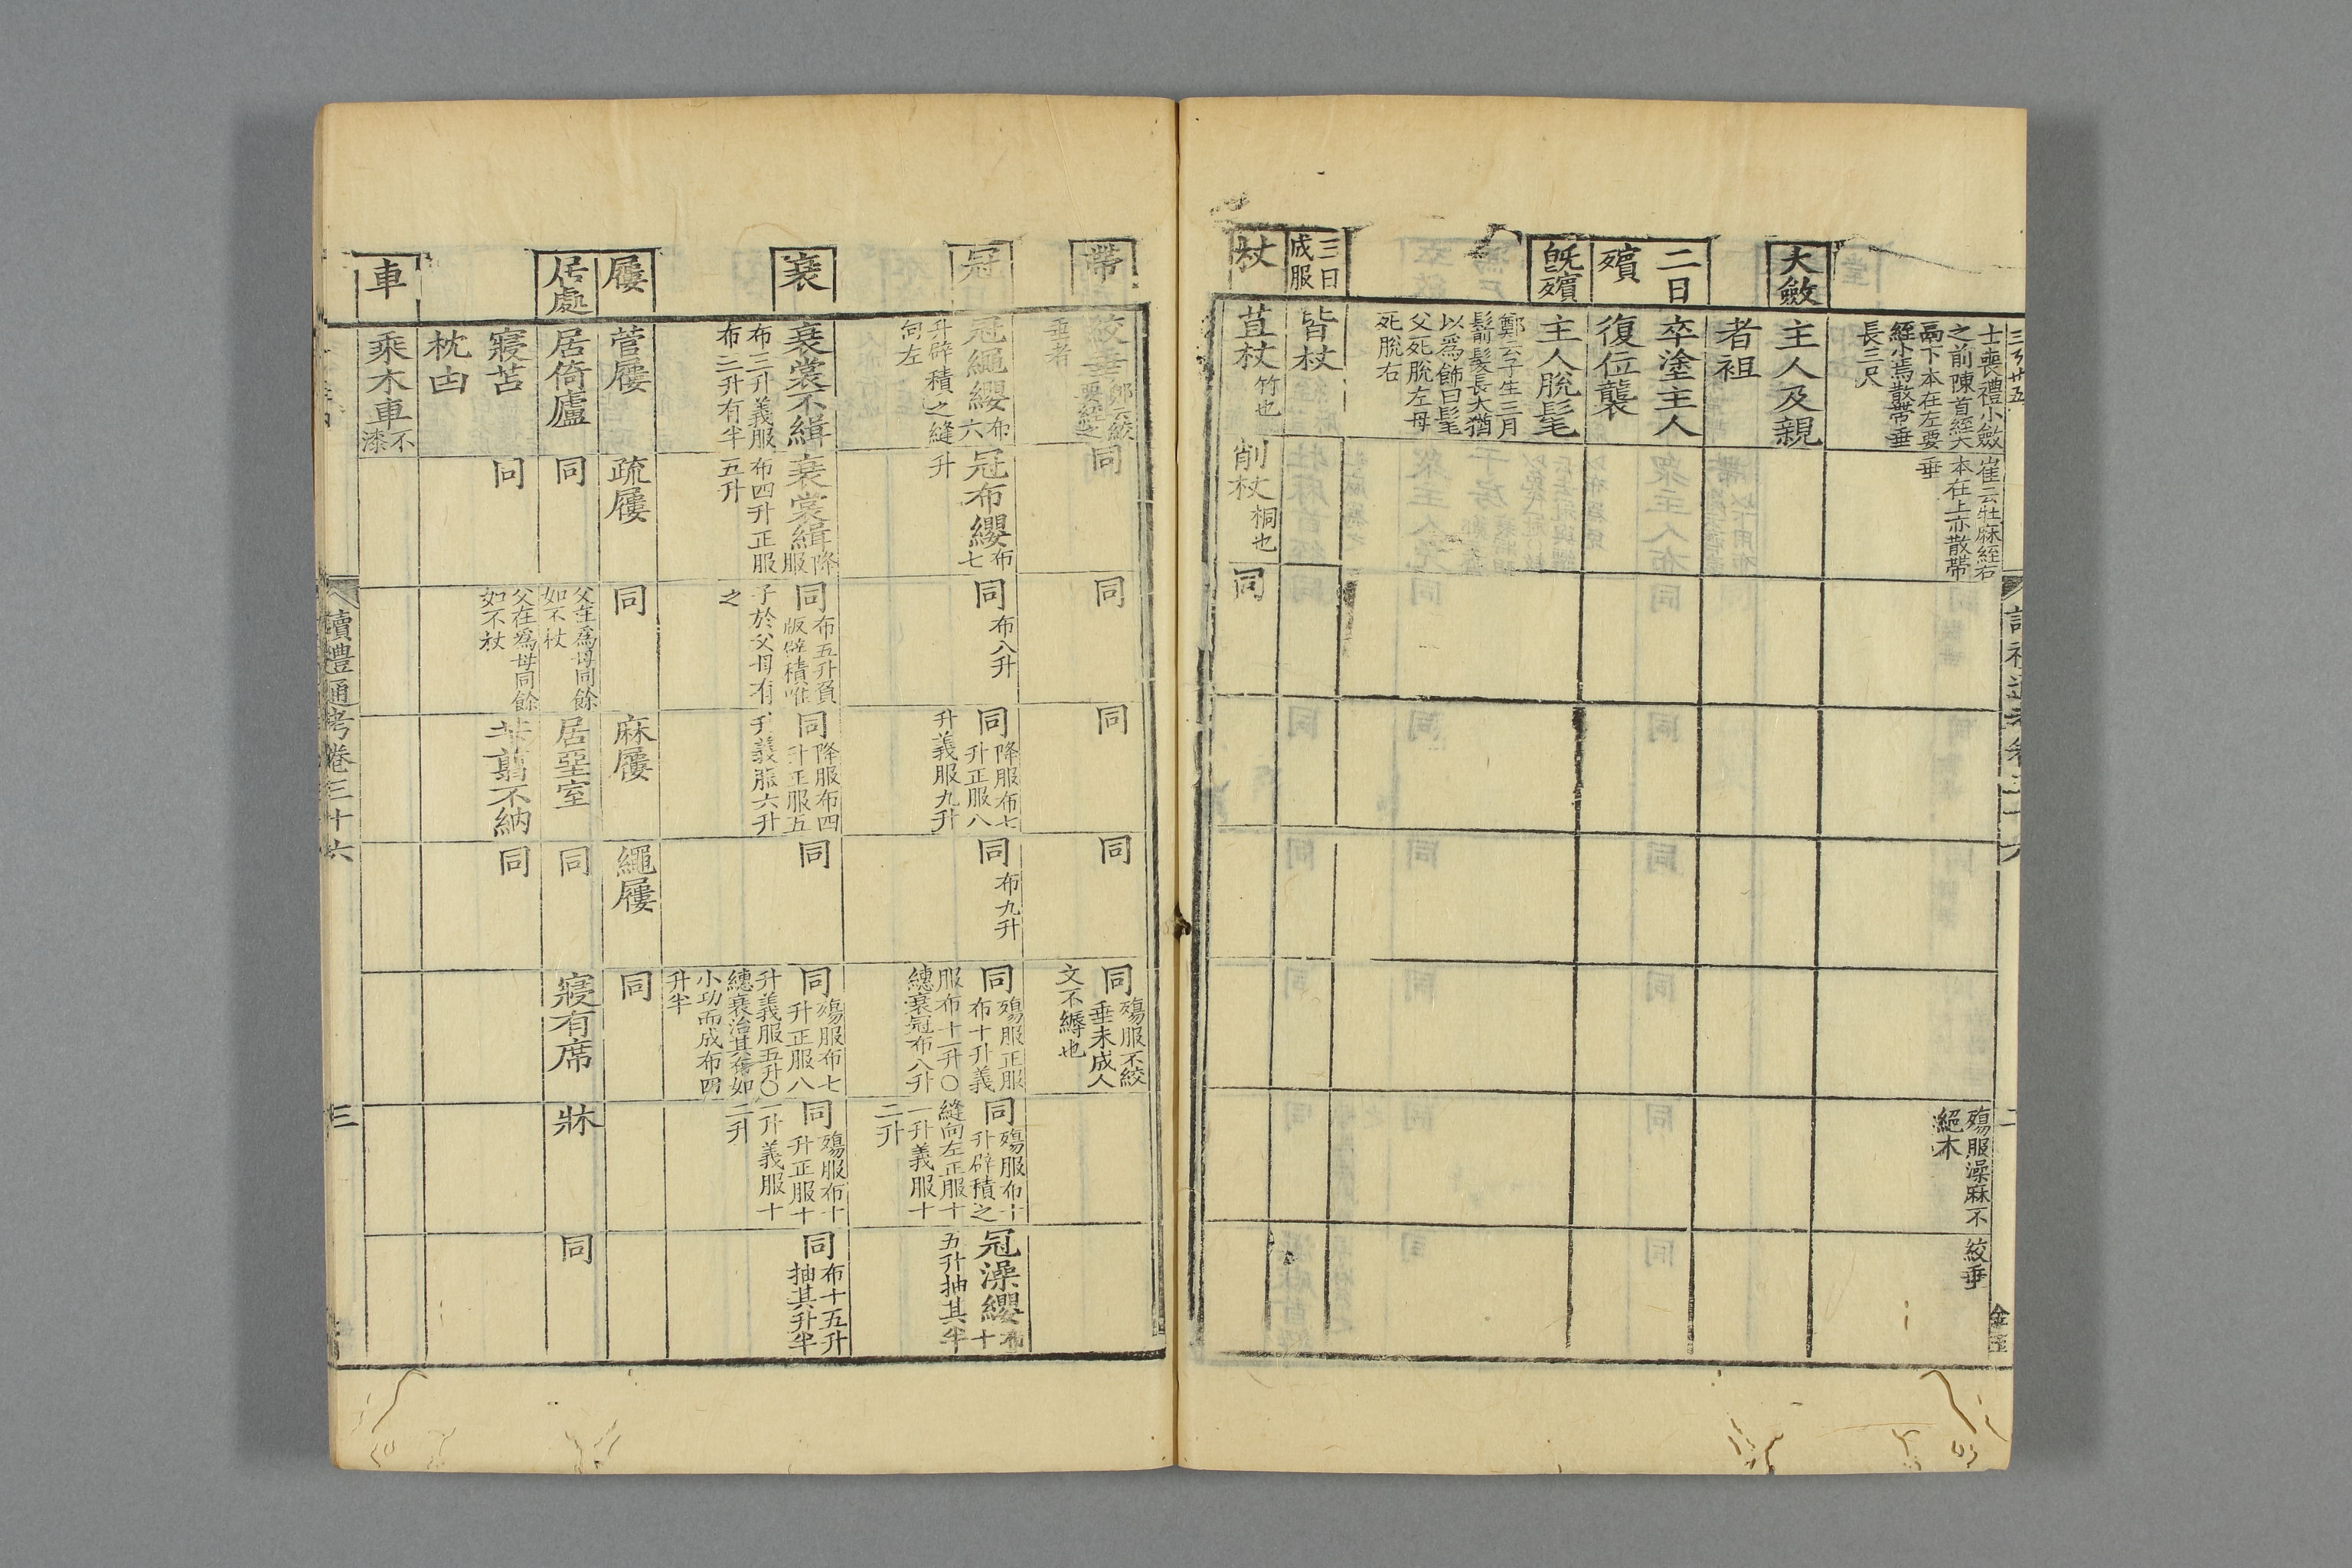 士喪禮小斂
之前陳首絰大
鬲下本在左要
絰小焉散帶垂
長三尺
崔云牡麻絰右
本在上亦散帶
垂
殤服澡麻不
絕本
絞垂
大斂
主人及親
者袒
二日
殯
卒塗主人
復位襲
既殯
主人脫髦
鄭云子生三月
翦髮長大猶
以爲飾曰髦
父死脫左母
死脫右
三日
成服
皆杖
杖
苴杖竹也
削杖桐也
同
帶
絞垂鄭云絞
要絰之
垂者
同
同
同
同
同殤服不絞
垂未成人
文不縟也
冠
冠繩纓布六
升辟積之縫
向左
冠布纓布七
升
同布八升
同降服布七
升正服八
升義服九升
同布九升
同殤服正服
布十升義
服布十一升○
繐衰冠布八升
同殤服布十
升辟積之
縫向左正服十
一升義服十
二升
冠澡纓布十
五升抽其半
衰
衰裳不緝
布三升義服
布三升有半
衰裳緝降服
布四升正服
五升
同布五升負
版辟積唯
子於父母有
之
同降服布四
升正服五
升義服六升
同
同殤服布七
升正服八
升義服五升○
繐衰治其縷如
小功而成布四
升半
同殤服布十
升正服十
一升義服十
二升
同布十五升
抽其升半
屨
菅屨
疏屨
同
麻屨
繩屨
同
居處
居倚廬
同
父在爲母同餘
如不杖
居堊室
同
寢有席
牀
同
寢苫
同
父在爲母同餘
如不杖
苄翦不納
同
枕凷
車
乘木車不漆
讀禮通考卷三十六
三